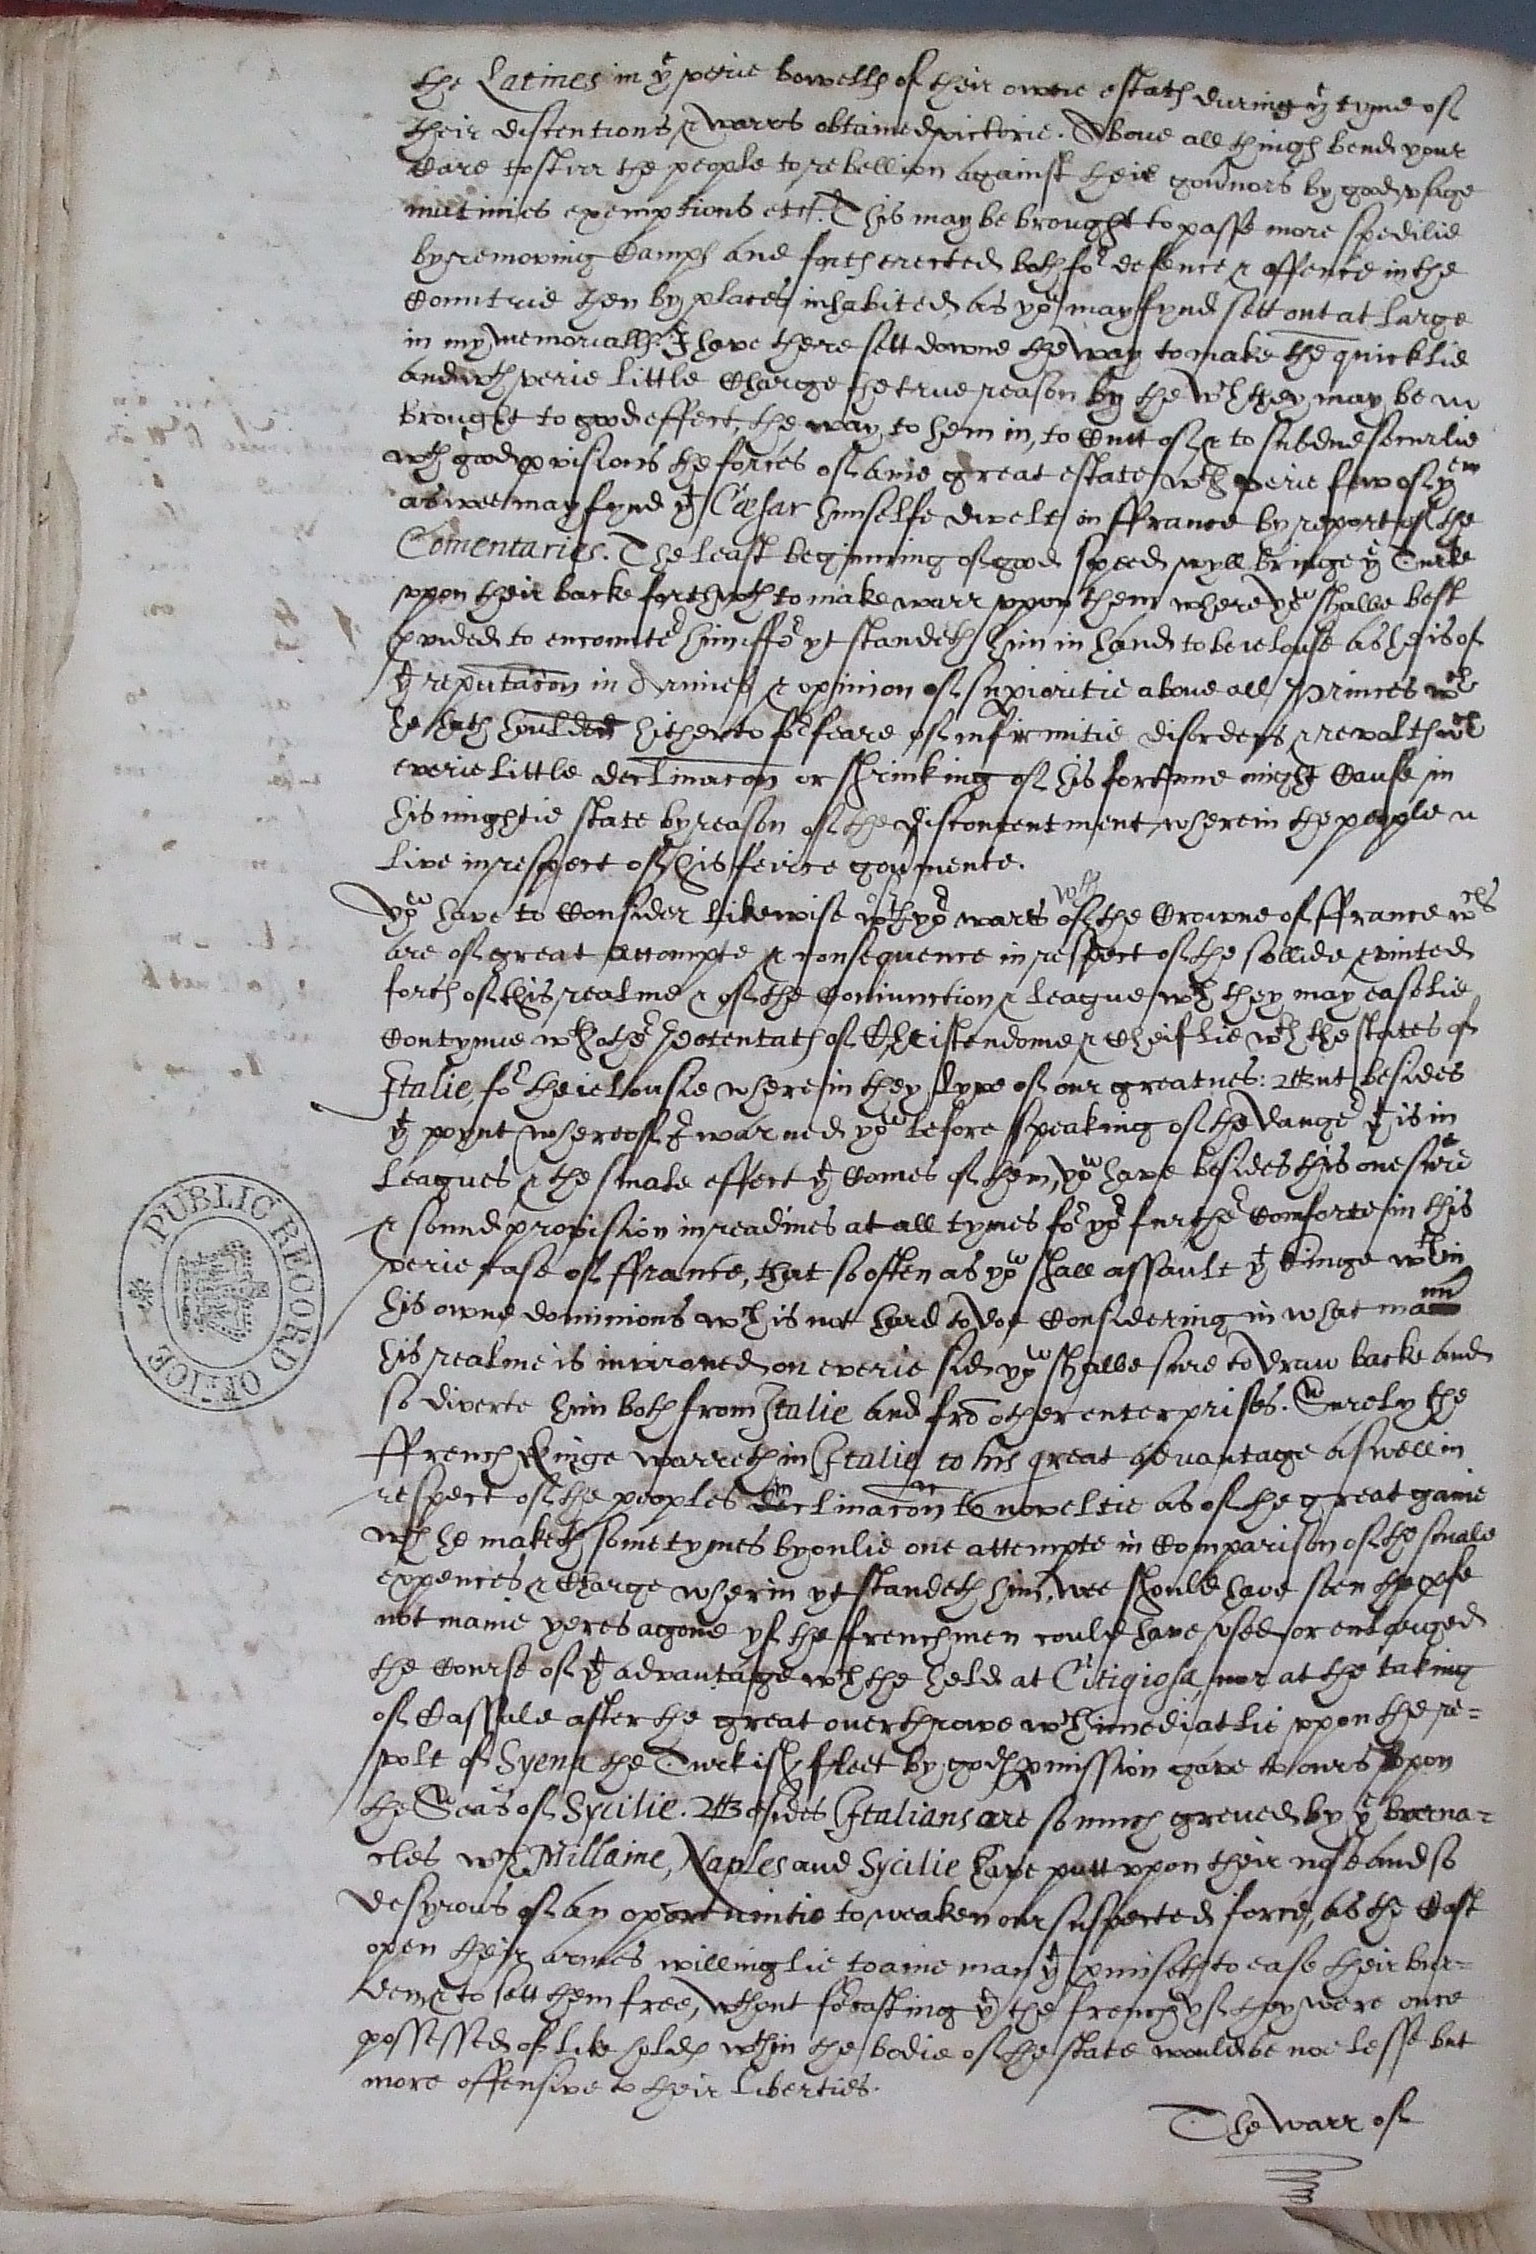 the Latines in yͤ verie bowells of their owne estates during yͤ tyme of
their discentions & warrs obtained victorie. Above all things bend your
Care to stirr the people to rebellion against their gou'nors by good vsage
mutinies exemptions etc. This may be brought to passe more spedilie
by removing Camps and forts erected both for defence & offence in the
Countrie then by places inhabited as yow may fynd sett out at large
in my memorialls I have there sett downe the way to make the quicklie
and wth verie little Charge the true reason by the wch they may be
brought to good effect, the way to hem in, to Cutt of & to subdue securlie
wth good p'visions the forces of anie great estate wth verie few of yem
as wee may fynd yt Cæsar himselfe dwelt in ffrance by report of the
Comentaries. The least beginning of good speed wyll bringe yͤ Turke
vpon their backe forthwth to make warr vpon them where yow shalbe best
p'vided to encounter him, ffor yt standeth him in hand to be ielouse as he is of
yͤ reputacon in Armies & opinion of sup'ioritie above all Princes wch
he hath houlden hitherto for feare of infirmitie disorders & revolts wch
everie little declinacon or shrinking of his fortune might Cause in
his mightie state by reason of the discontentment wherein the people
live in respect of his feirce gou'mente.
yow have to Consider likewise wth yor warrs wth of the Crowne of ffrance wchs
are of great attempte & consequence in respect of the sollide & vnited
forces of this realme & of the Coniunction & league wch they may easelie
Contynue wth other Potentats of Christendome & Cheiflie wth the states of
Italie, for the ielousie wherein they lyve of our greatnes: But besides
yͤ poynt whereof I warned yow before speaking of the danger yt is in
leagues & the smale effect yt Comes of them, yow have besides this one sure
& sound provision in readines at all tymes for yor further Comforte in this
verie case of ffrance, that so often as yow shall assault yͤ Kinge wthin
his owne dominions wch is not hard to doe Considering in what mann
his realme is invironed on everie side yow shalbe sure to draw backe and
so diverte him both from Italie and fro other enterprises. Surely the
ffrench Kinge warreth in Italie to his great advantage aswell in
respect of the peoples inclinacon to noveltie as of the great gaine
wch he maketh sometymes by onlie one attempte in Comparison of the smale
expences & Charge wherin yt standeth him, wee should have seen the p'fe
not manie yeres agone yf the ffrenchmen could have vsed or enlarged
the Course of yͤ advantage wch the held at Citigiosa, nor at the taking
of Cassale after the great overthrowe wch imediatlie vpon the re=
volt of Syena the Turkish ffleet by gods p'mission gave to ours vpon
the Seas of Sycilie. Besides Italians are so much greued by yͤ barna=
cles wch Millaine, Naples and Sycilie have putt vpon their nose and so
desyrous of an oportunitie to weaken our suspected force, as the Cast
open their armes willinglie to anie man yt p'miseth to ease their bur=
den & to sett them free, wthout forcasting yt the french yf they were once
possessed of like holds wthin the bodie of the state would be noe lesse but
more offensive to their liberties.
The warr of
PUBLIC RECORD OFFICE